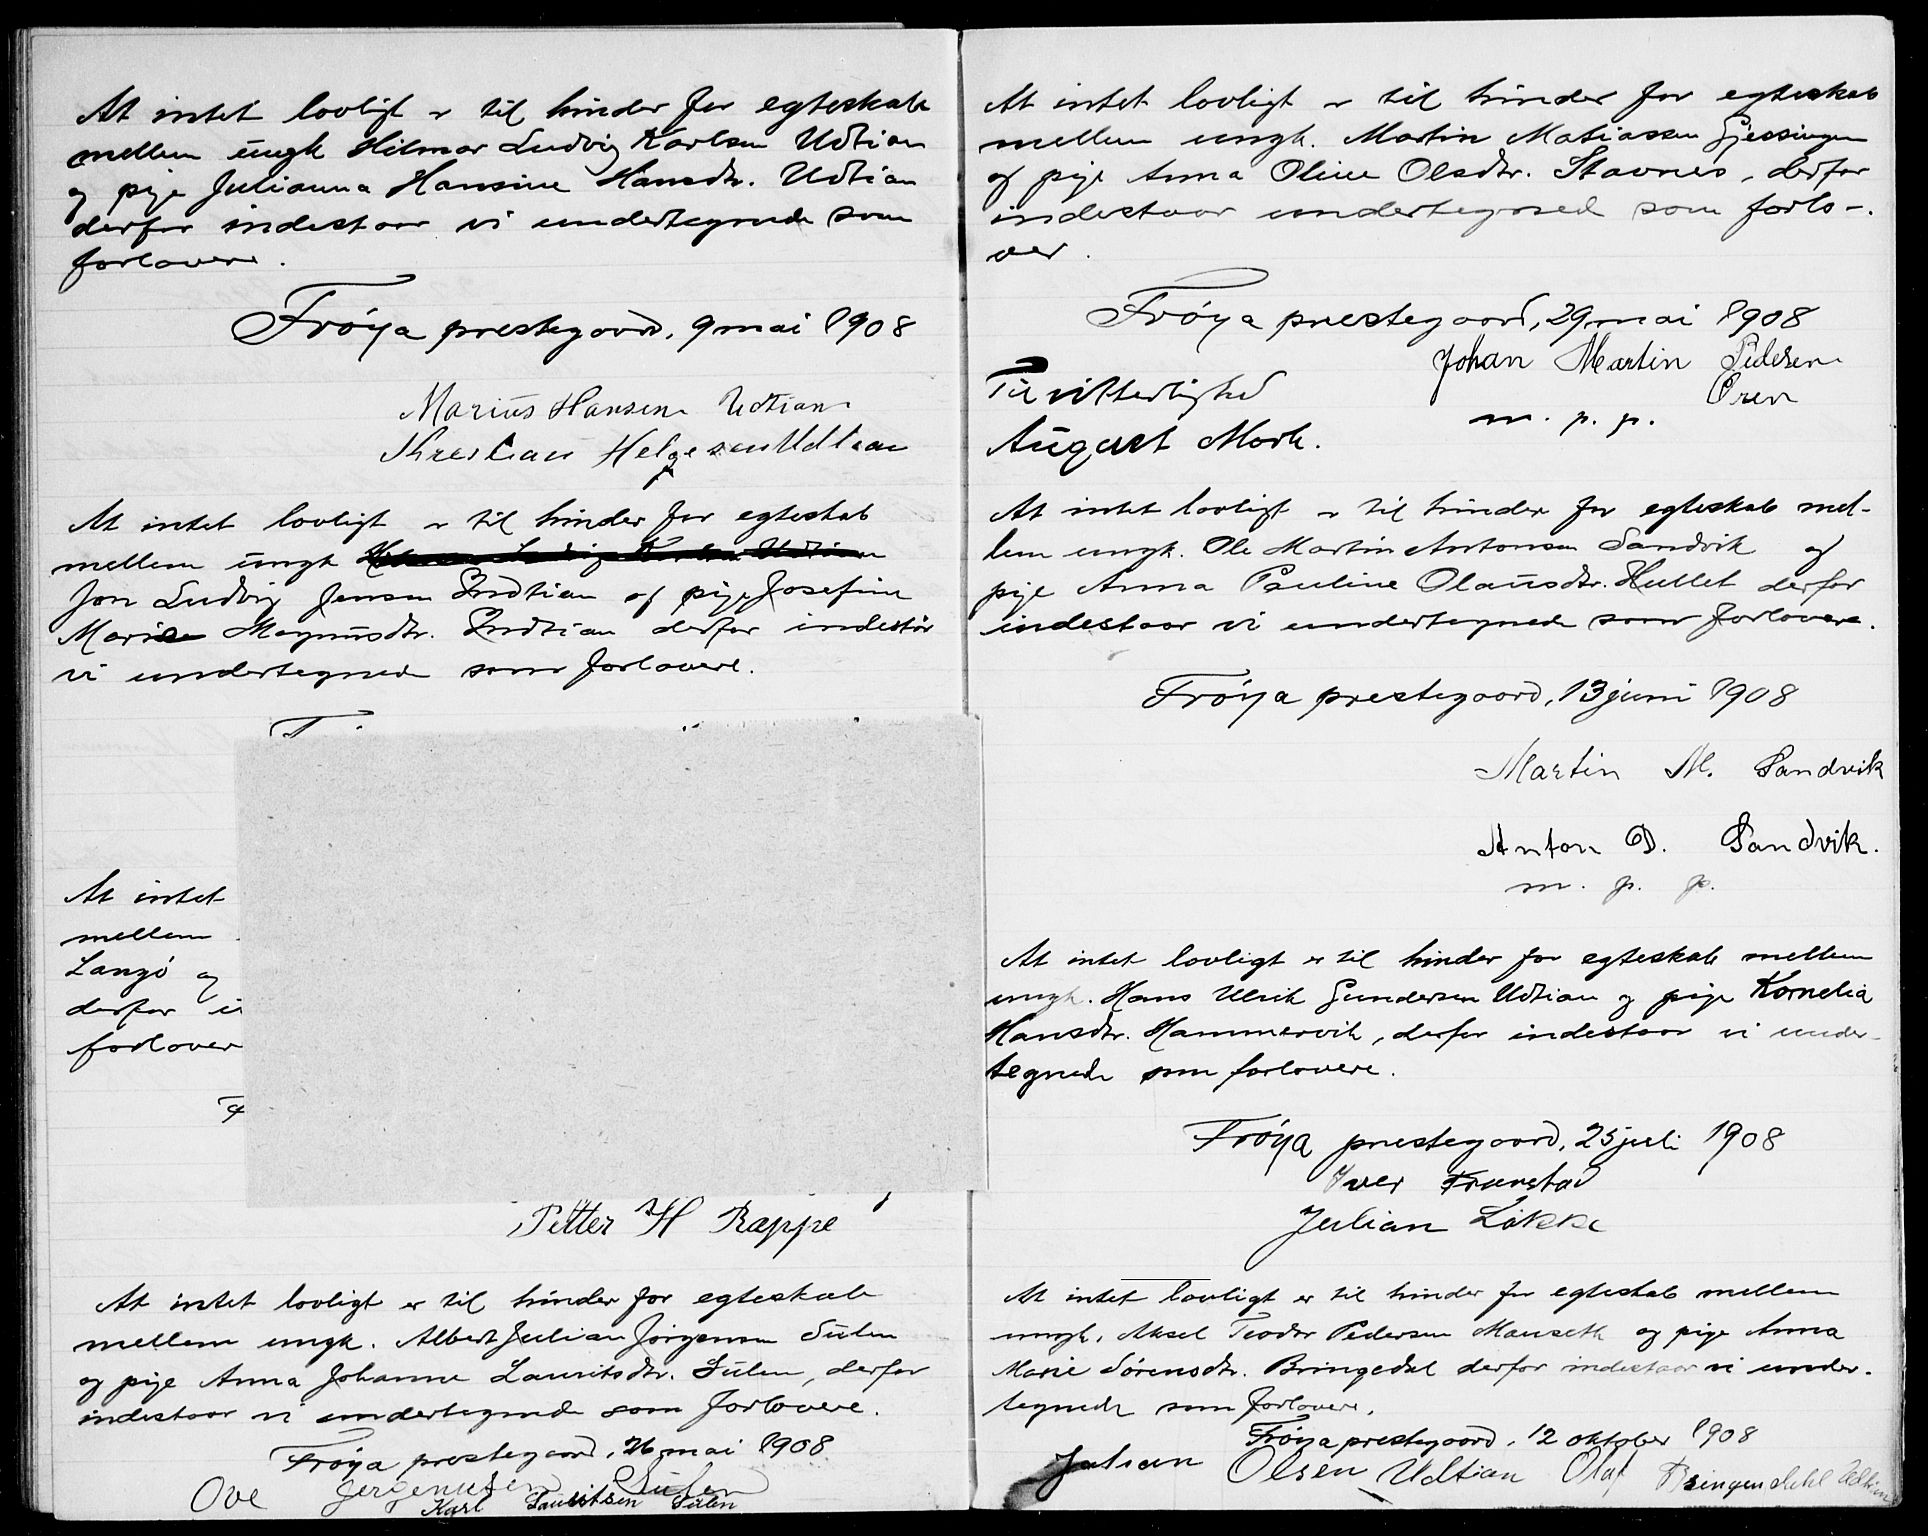 At intet lovligt er til hinder for egteskab
mellem ungk Hilmar Ludvig Karlsen Udtian
og pige Julianna Hansine Hansdtr. Udtian
derfor indestaar vi undertegnede som
forlovere.
Frøya prestegaard, 9 mai 1908
Marius Hansen Udtian
Kristian Helgesen Udtian
At intet lovligt er til hinder for egteskab
mellem ungk
Jon Ludvig Jensen Indtian og pige Josefine
Marie Magnusdtr. Indtian derfor indestår
vi undertegnede som forlovere.
At intet
mellem
Langø og
derfor
forlover
Petter H Rappe
At intet lovligt er til hinder for egteskab
mellem ungk. Albert Julian Jørgensen Sulen
og pige Anna Johanne Lauritsdtr. Sulen, derfor
indestaar vi undertegnede som forlovere.
Frøya prestegaard, 26 mai 1908
Ove Jergensen Sulen
Karl Lauritsen Sulen
At intet lovligt er til hinder for egteskab
mellem ungk. Martin Matiassen Gjessingen
og pige Anna Oline Olsdtr. Stavnes, derfor
indestaar undertegned som forlo-
ver.
Frøya prestegaard, 29 mai 1908
Johan Martin Pedersen
Øren
m. p. p.
Til vitterlighed
August Mork.
At intet lovligt er til hinder for egteskab mel-
lem ungk. Ole Martin Antonsen Sandvik og
pige Anna Pauline Olausdtr. Hullet derfor
indestaar vi undertegnede som forlovere.
Frøya prestegaard, 13 juni 1908
Martin M. Sandvik
Anton D. Sandvik.
m. p. p.
At intet lovligt er til hinder for egteskab mellem
ungk. Hans Ulrik Gundersen Udtian og pige Kornelia
Hansdtr. Hammervik, derfor indestaar vi under-
tegnede som forlovere.
Frøya prestegaard, 25 juli 1908
Iver Frønstad
Julian Løkke
At intet lovligt er til hinder for egteskab mellem
ungk. Aksel Teodor Pedersen Mauseth og pige Anna
Marie Sørensdtr. Bringedal derfor indestaar vi under-
tegnede som forlovere.
Frøya prestegaard, 12 oktober 1908
Julian Olsen Udtian Olaf Bringendahl Udtian